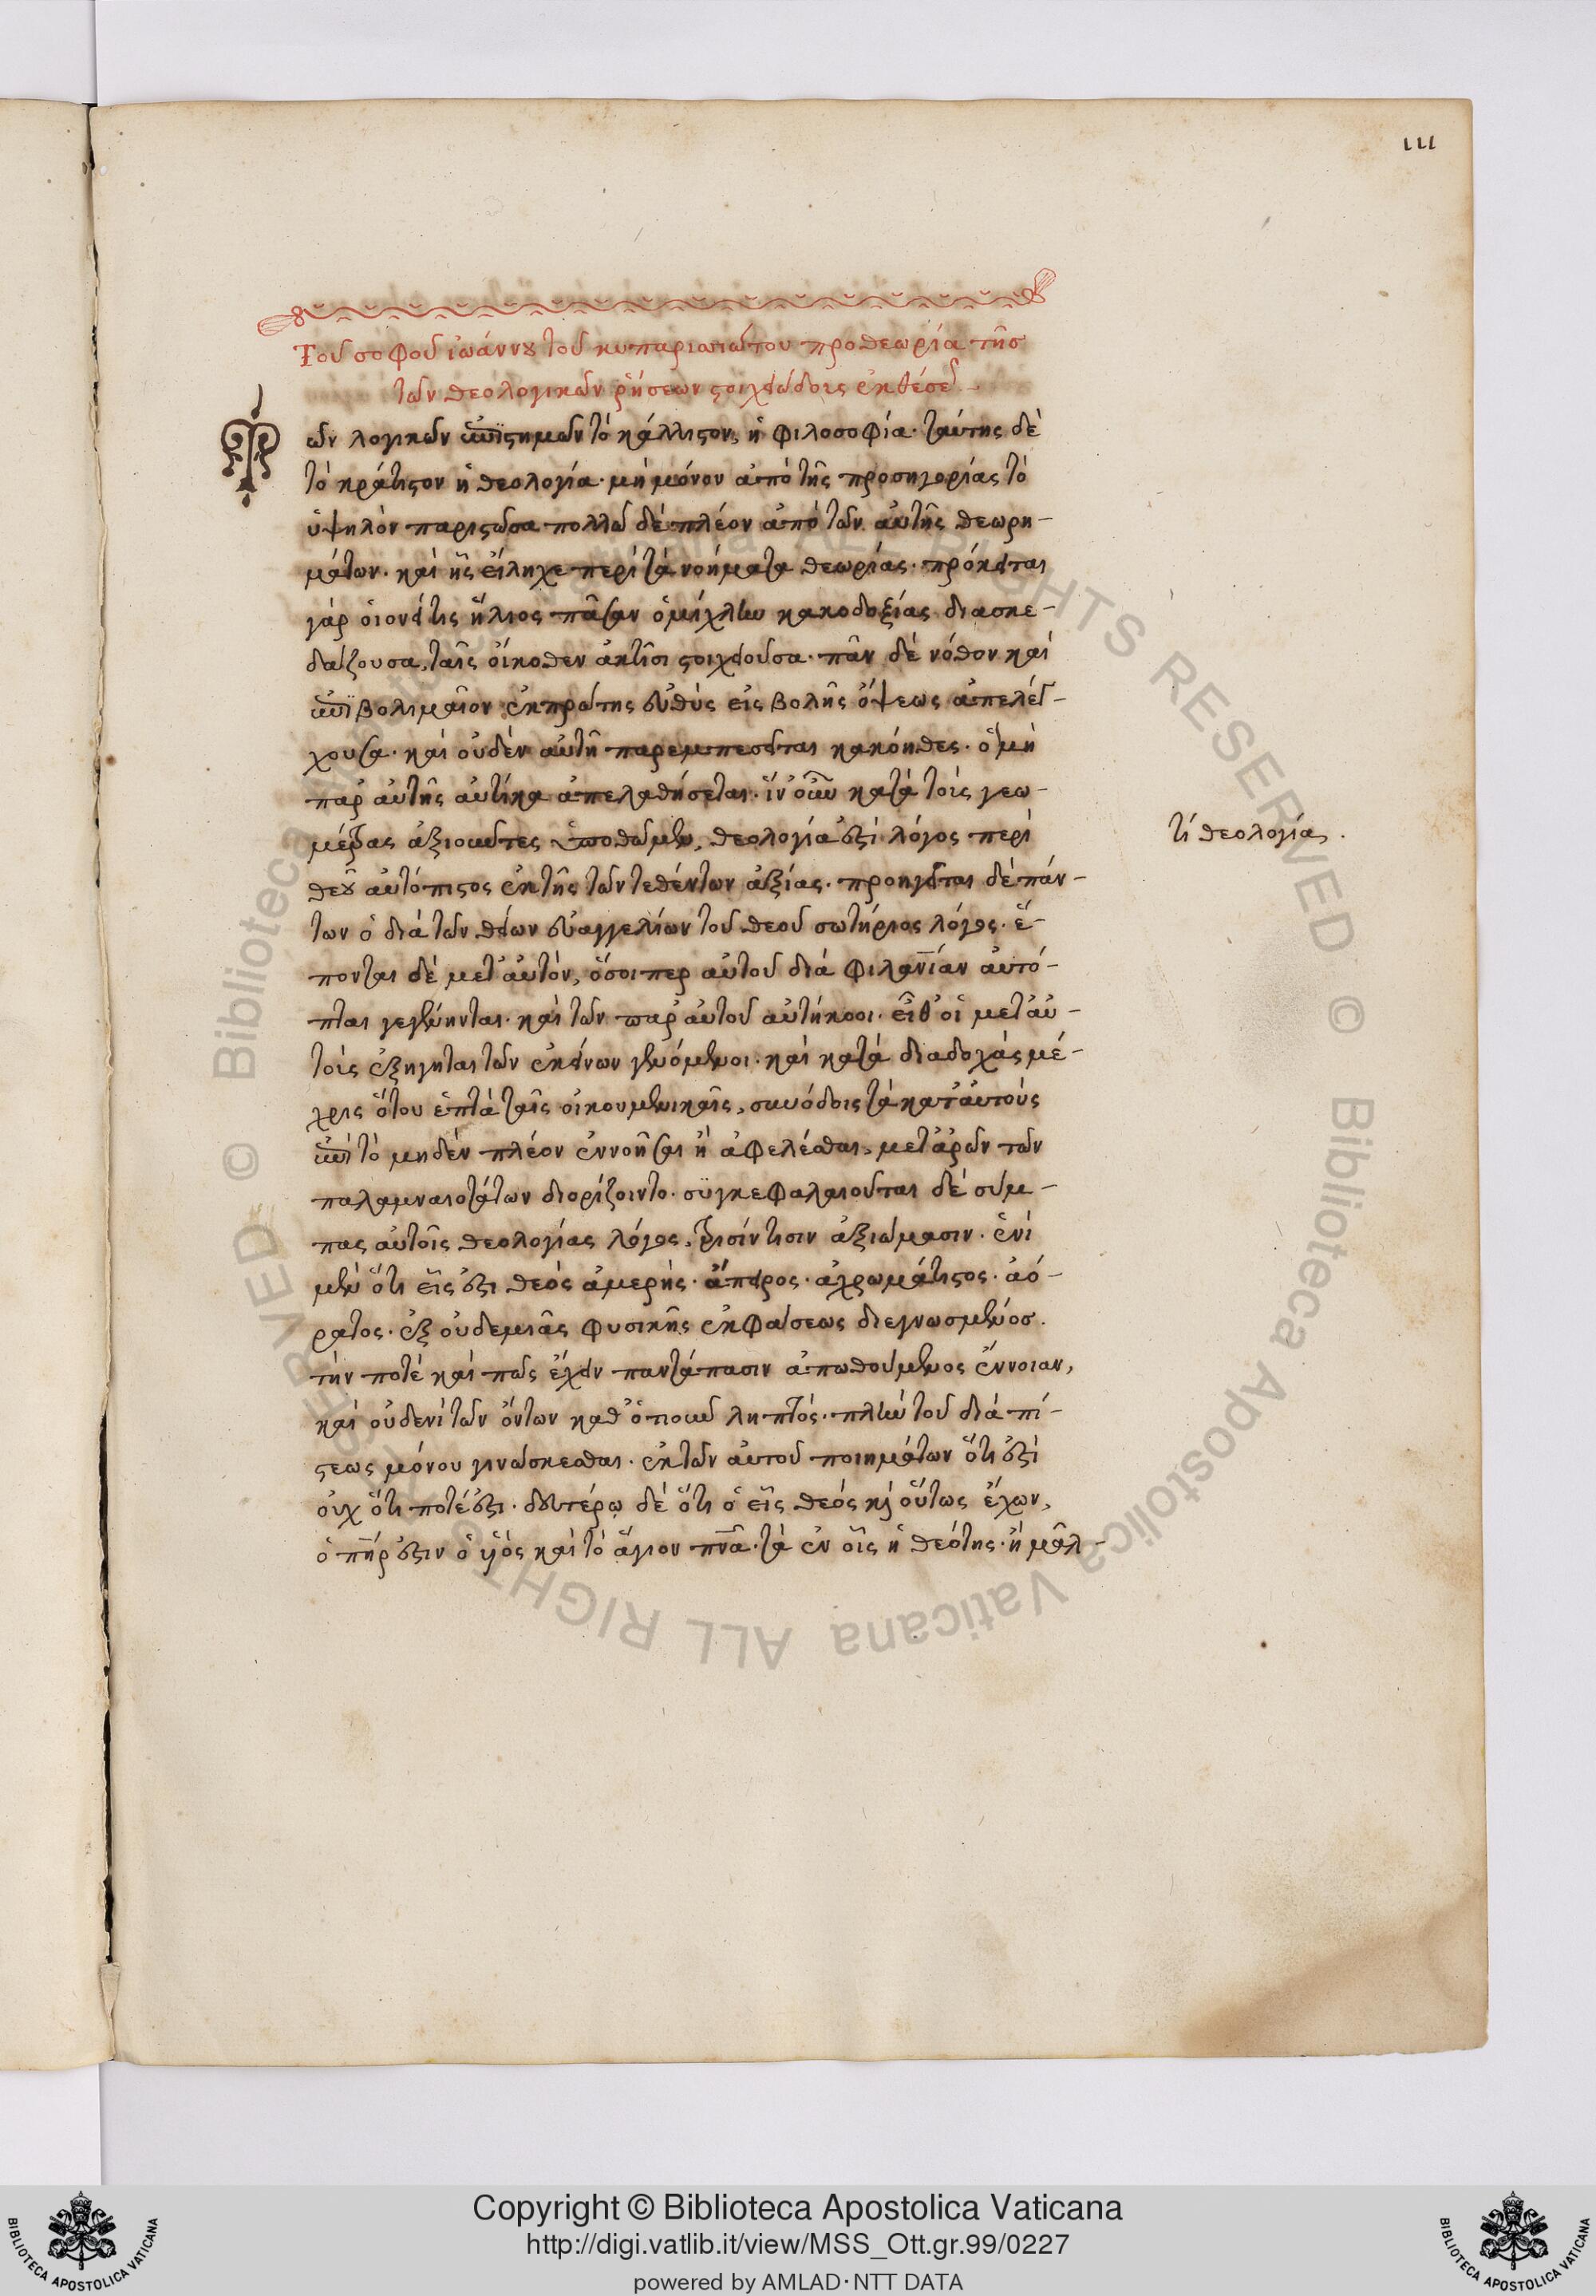 111
Τοῦ σοφοῦ ἰωάννου τοῦ κυπαρισιώτου προθεωρία τῆς
τῶν θεολογικῶν ῥήσεων στοιχειώδους ἐκθέσεως
Τῶν λογικῶν ἐπιστημῶν τὸ κάλλιστον, ἡ φιλοσοφία· ταύτης δὲ
τὸ κράτιστον ἡ θεολογία· μὴ μόνον ἀπὸ τῆς προσηγορίας τὸ
ὑψηλὸν παριστῶσα πολλῶ δὲ πλέον ἀπὸ τῶν αὐτῆς θεωρη-
μάτων· καὶ ἧς εἴληχε περὶ τὰ νοήματα θεωρίας· πρόκειται
γὰρ οἱονεί τις ἥλιος πᾶσαν ὁμίχλην κακοδοξίας διασκε-
δάζουσα, ταῖς οἴκοθεν ἀκτῖσι στοιχοῦσα· πᾶν δὲ νόθον καὶ
ἐπϊβολιμαῖον ἐκ πρώτης εὐθὺς εἰσβολῆς ὄψεως ἀπελέγ-
χουσα· καὶ οὐδὲν αὐτῆ παρεμπεσεῖται κακόηθες· ὃ μὴ
παρ' αὐτῆς αὐτίκα ἀπελαθήσεται· ἵν' οὖν κατὰ τοὺς γεω-
μέτρας ἀξιοῦντες ὑποθώμεν, θεολογία ἐστὶ λόγος περὶ
τί θεολογία.
θεοῦ αὐτόπιστος ἐκ τῆς τῶν τεθέντων ἀξίας· προηγεῖται δὲ πάν-
των ὁ διὰ τῶν θείων εὐαγγελίων τοῦ θεοῦ σωτήριος λόγος· ἕ-
πονται δὲ μετ' αὐτὸν, ὅσοιπερ αὐτοῦ διὰ φιλανίαν αὐτό-
πται γεγένηνται· καὶ τῶν παρ' αὐτοῦ αὐτήκοοι· εἶθ' οἱ μετ' αὐ-
τοὺς ἐξηγηταὶ τῶν ἐκείνων γενόμενοι· καὶ κατὰ διαδοχὰς μέ-
χρις ὅτου ἑπτὰ ταῖς οἰκουμενικαῖς, συνόδοις τὰ κατ' αὐτοὺς
ἐπὶ τὸ μηδὲν πλέον ἐννοῆσαι ἢ ἀφελέσθαι, μετ' ἀρῶν τῶν
παλαμναιοτάτων διορίζοιντο· συγκεφαλαιοῦται δὲ σύμ-
πας αὐτοῖς θεολογίας λόγος, τρισίν τισιν ἀξιώμασιν· ἑνὶ
μὲν ὅτι εἷς ἐστι θεὸς ἀμερὴς· ἄπειρος· ἀχρωμάτιστος· ἀό-
ρατος· ἐξ οὐδεμιᾶς φυσικῆς ἐκφάσεως διεγνωσμένος.
τήν ποτὲ καὶ πῶς ἔχειν παντάπασιν ἀπωθούμενος ἔννοιαν,
καὶ οὐδενὶ τῶν ὄντων καθ' ὁπιοῦν ληπτός· πλὴν τοῦ διὰ πί-
στεως μόνου γινώσκεσθαι· ἐκ τῶν αὐτοῦ ποιημάτων ὅτι ἐστὶ
οὐχ ὅτι ποτέ ἐστι· δευτέρῳ δὲ ὅτι ὁ εἷς θεὸς καὶ οὕτως ἔχων,
ὁ πηρ ἐστιν ὁ υἱὸς καὶ τὸ ἅγιον πνα· τὰ ἐν οἷς ἡ θεότης· ἢ μᾶλ-
Copyright © Biblioteca Apostolica Vaticana
http://digi.vatlib.it/view/MSS_Ott.gr.99/0227
powered by AMLAD·NTT DATA
BIBLIOTECA APOSTOLICA VATICANA
BIBLIOTECA APOSTOLICA VATICANA
© Biblioteca Apostolica Vaticana ALL RIGHTS RESERVED
© Biblioteca Apostolica Vaticana ALL RIGHTS RESERVED